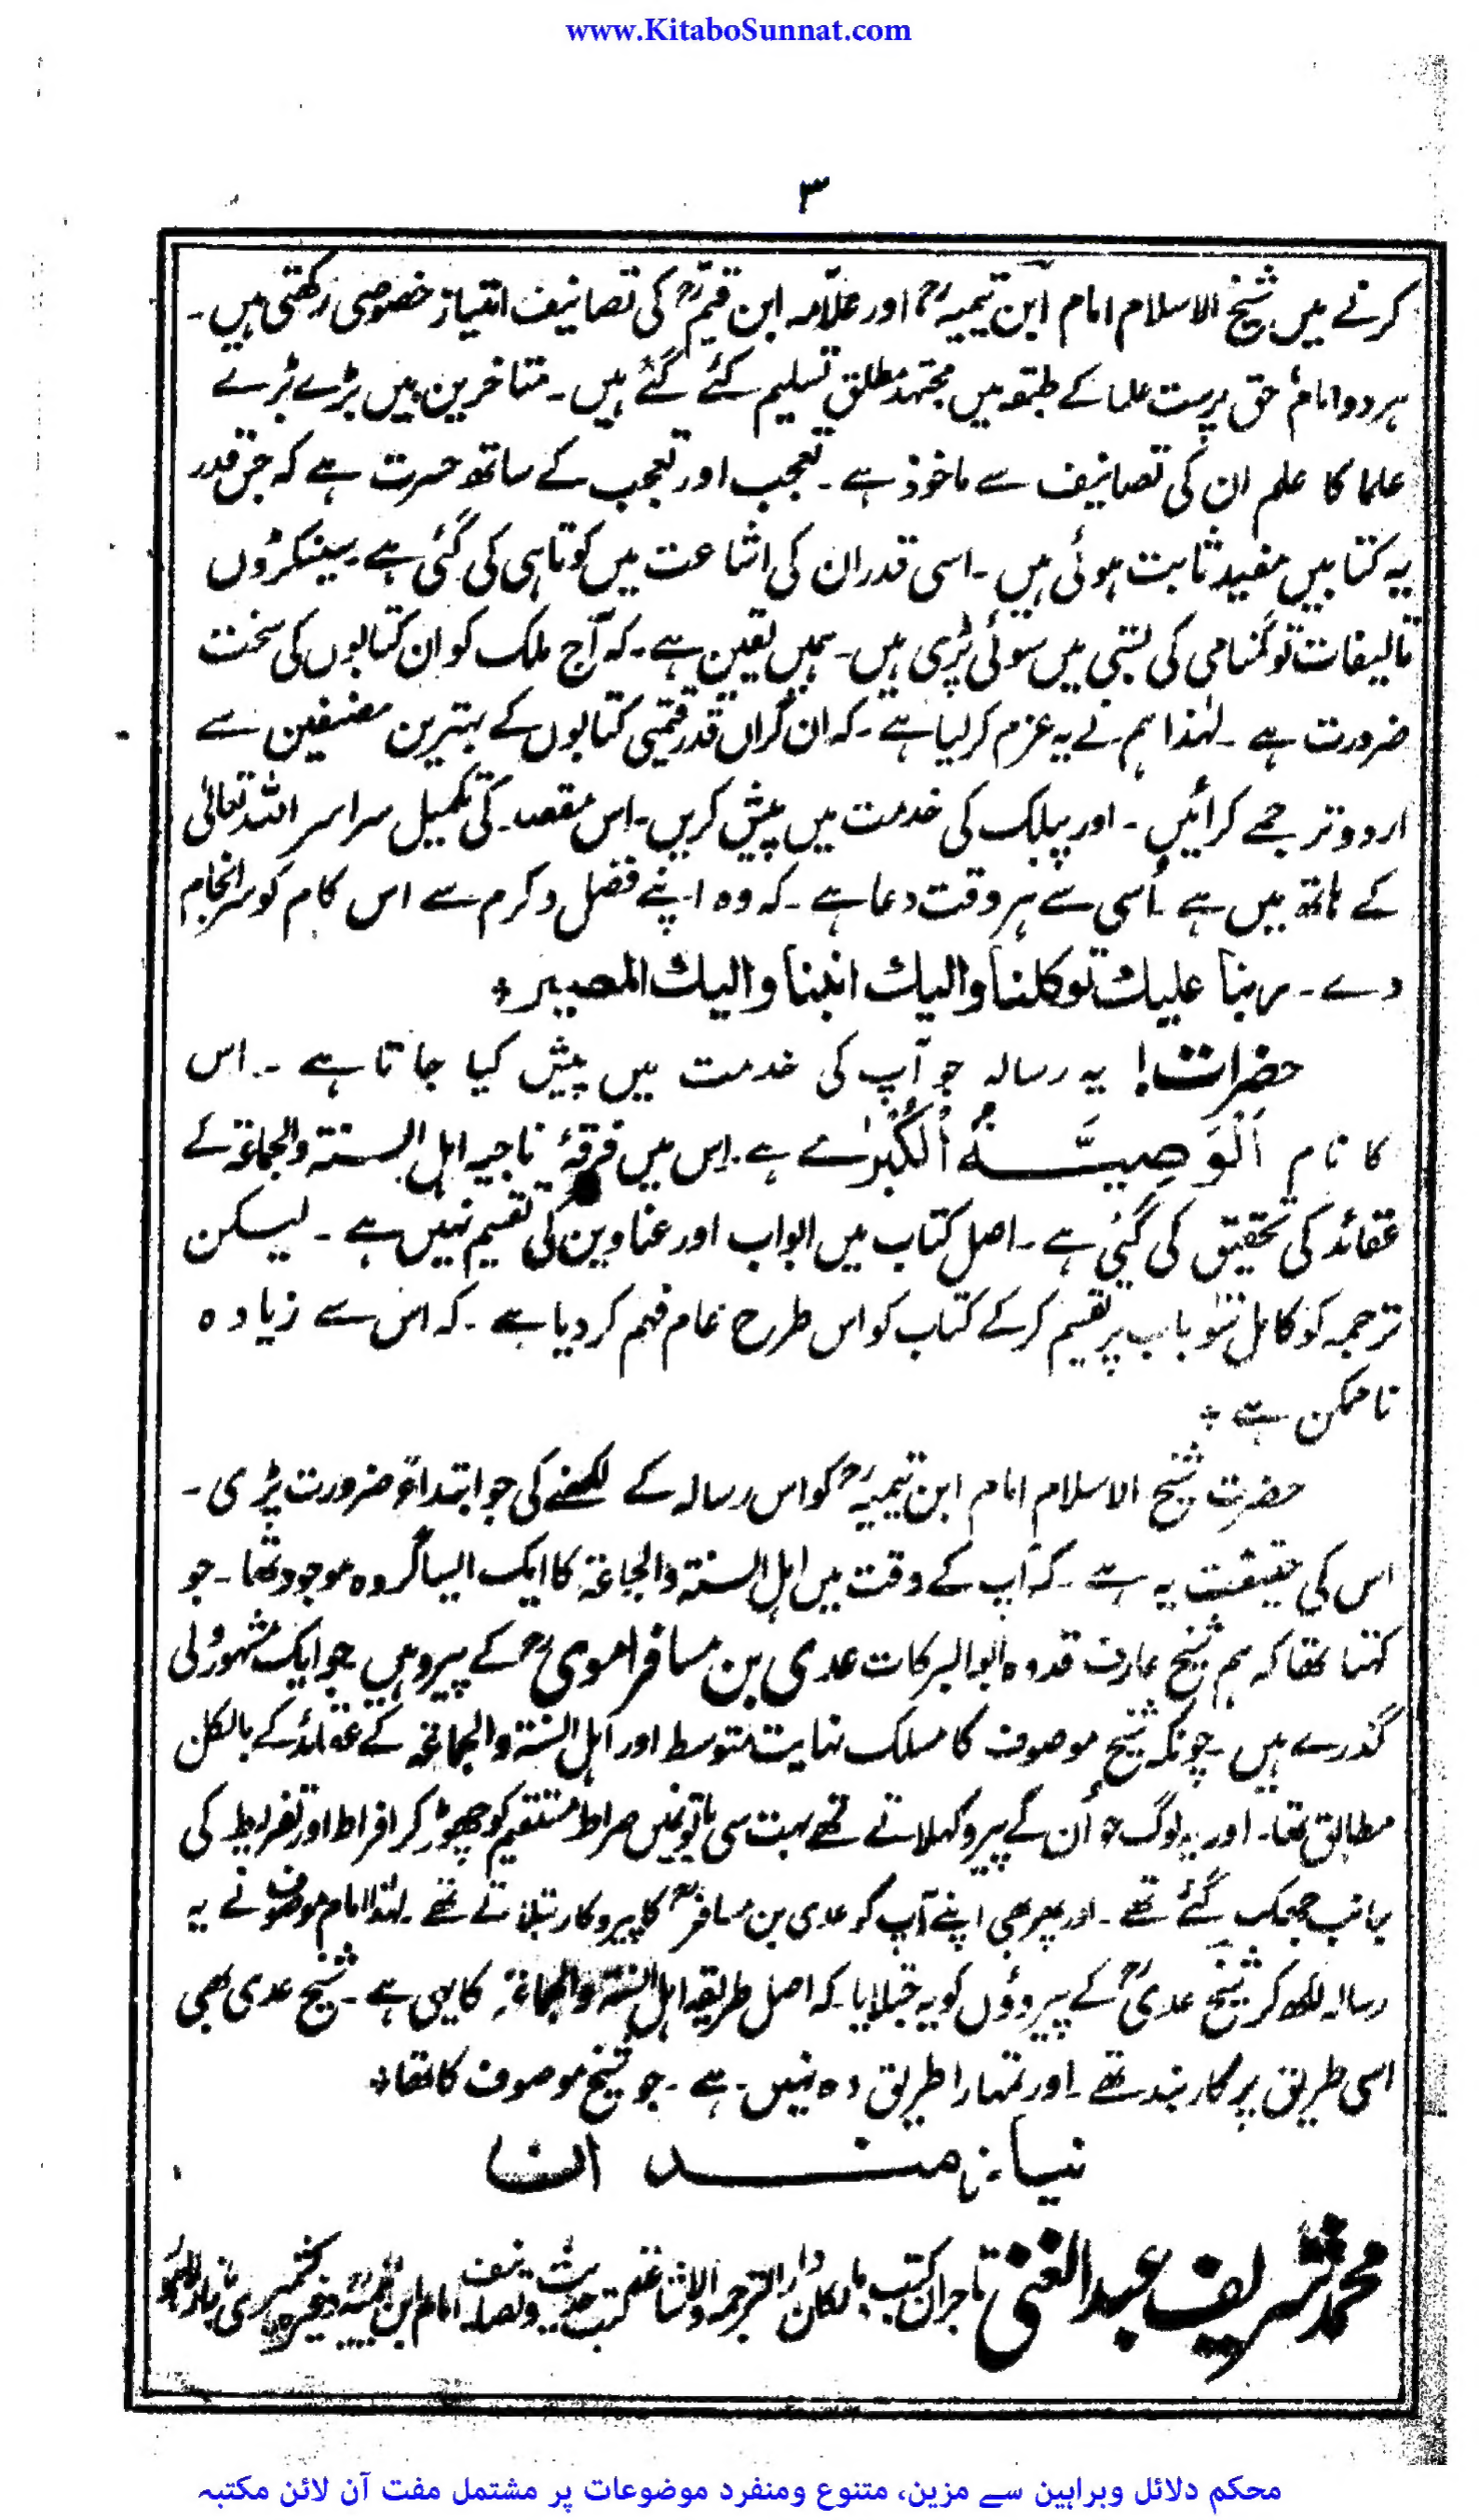 www.KitaboSunnat.com
۳
کرنے میں شیخ الاسلام امام ابن تیمیہؒ اور علامہ ابن قیمؒ کی تصانیف امتیاز خصوصی رکھتی ہیں۔
ہر دو امام حق پرست علما کے طبقہ میں مجتہد مطلق تسلیم کئے گئے ہیں۔ متاخرین میں بڑے بڑے
علما کا علم ان کی تصانیف سے ماخوذ ہے۔ تعجب اور تعجب کے ساتھ حسرت ہے کہ جس قدر
یہ کتابیں مفید ثابت ہوئی ہیں۔ اسی قدر ان کی اشاعت میں کوتاہی کی گئی ہے سینکڑوں
تالیفات تو گمنامی کی بستی میں سوئی پڑی ہیں۔ ہمیں یقین ہے۔ کہ آج ملک کو ان کتابوں کی سخت
ضرورت ہے۔ لہٰذا ہم نے یہ عزم کر لیا ہے۔ کہ ان گراں قدر قیمتی کتابوں کے بہترین مصنفین سے
اردو ترجمے کرائیں۔ اور پبلک کی خدمت میں پیش کریں۔ اس مقصد کی تکمیل سراسر اللہ تعالیٰ
کے ہاتھ میں ہے اُسی سے ہر وقت دعا ہے۔ کہ وہ اپنے فضل و کرم سے اس کام کو سرانجام
دے۔ ربنا علیک توکلنا والیک انبنا والیک المصیر ٭
حضرات! یہ رسالہ جو آپ کی خدمت میں پیش کیا جاتا ہے۔ اس
کا نام اَلْوَصِیَّۃُ الْکُبْرٰے ہے۔ اس میں فرقۂ ناجیہ اہل السنۃ والجماعۃ کے
عقائد کی تحقیق کی گئی ہے۔ اصل کتاب میں ابواب اور عناوین کی تقسیم نہیں ہے۔ لیکن
ترجمہ کو کامل سَو باب پر تقسیم کر کے کتاب کو اس طرح عام فہم کر دیا ہے۔ کہ اس سے زیادہ
ناممکن ہے ٭
حضرت شیخ الاسلام امام ابن تیمیہؒ کو اس رسالہ کے لکھنے کی جو ابتداءً ضرورت پڑی۔
اس کی حقیقت یہ ہے۔ کہ آپ کے وقت میں اہل السنۃ والجماعۃ کا ایک ایسا گروہ موجود تھا۔ جو
کہتا تھا کہ ہم شیخ عارف قدوہ ابو البرکات عدی بن مسافر امویؒ کے پیرو ہیں جو ایک مشہور ولی
گذرے ہیں۔ چونکہ شیخ موصوف کا مسلک نہایت متوسط اور اہل السنۃ والجماعۃ کے عقائد کے بالکل
مطابق تھا۔ اور یہ لوگ جو اُن کے پیرو کہلاتے تھے بہت سی باتوں میں صراط مستقیم کو چھوڑ کر افراط اور تفریط کی
جانب جھک گئے تھے۔ اور پھر بھی اپنے آپ کو عدی بن مسافرؒ کا پیروکار بتلاتے تھے۔ لہٰذا امام موصوف نے یہ
رسالہ لکھ کر شیخ عدیؒ کے پیروؤں کو یہ جتلایا کہ اصل طریقہ اہل السنۃ والجماعۃ کا یہی ہے۔ شیخ عدی بھی
اسی طریق پر کاربند تھے۔ اور تمہارا طریق وہ نہیں۔ ہے۔ جو شیخ موصوف کا تھا ٭
نیازمندان
محمد شریف عبد الغنی تاجران کتب مالکان دار الترجمہ والاشاعۃ کتب حدیث و تصانیف امام ابن تیمیہؒ وغیرہ کشمیری بازار لاہور
محکم دلائل وبراہین سے مزین، متنوع ومنفرد موضوعات پر مشتمل مفت آن لائن مکتبہ